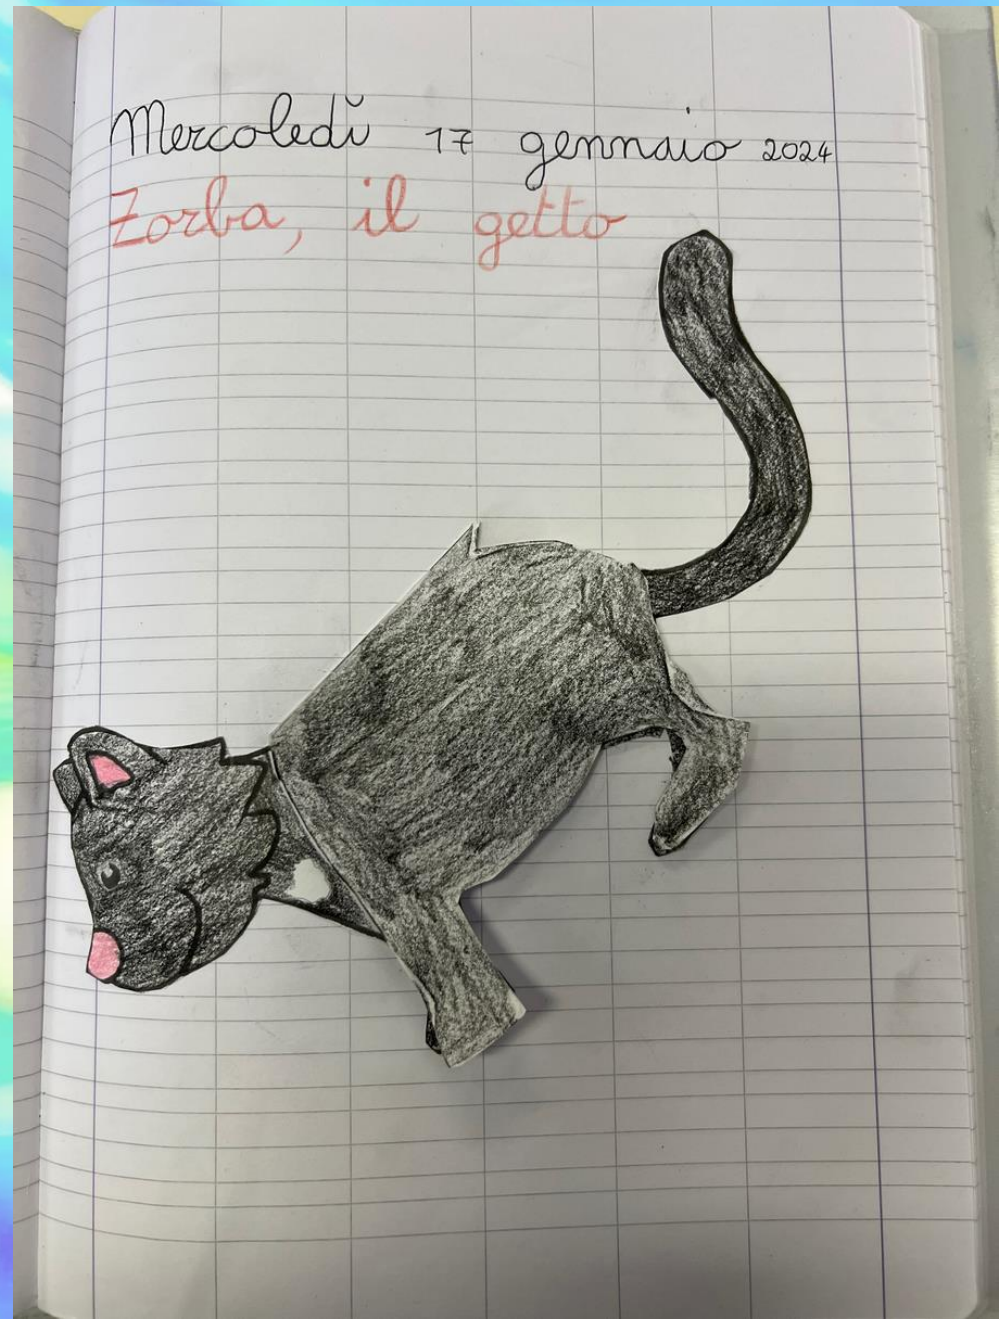 Mercoledì 17 gennaio 2024
Zorba, il getto